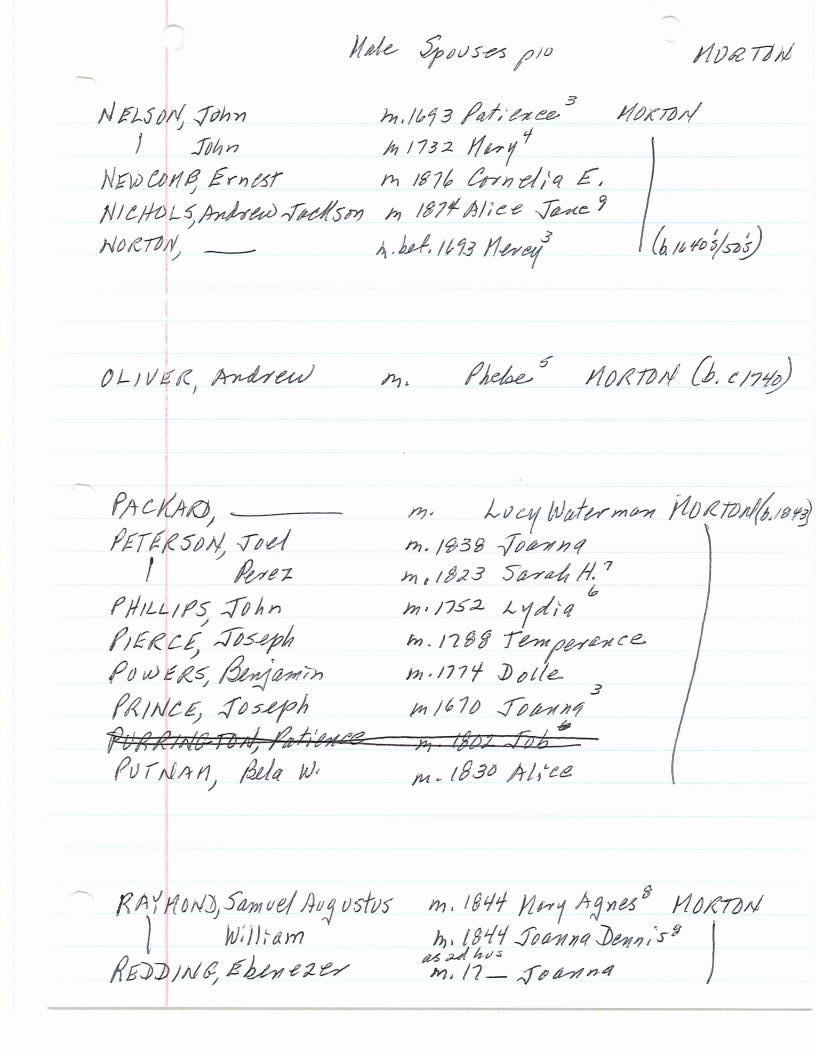 Male Spouses p10 MORTON
NELSON, John m. 1693 Patience³ MORTON
John m 1732 Mary⁴
NEWCOMB, Ernest m 1876 Cornelia E.
NICHOLS, Andrew Jackson m 1874 Alice Jane⁹
NORTON, —— m. bet. 1693 Mercy³ (b. 1640's/50's)
OLIVER, Andrew m. Phebe⁵ MORTON (b. c 1740)
PACKARD, ———— m. Lucy Waterman MORTON (b. 1843)
PETERSON, Joel m. 1838 Joanna
Perez m. 1823 Sarah H.⁷
PHILLIPS, John m. 1752 Lydia⁶
PIERCE, Joseph m. 1788 Temperance
POWERS, Benjamin m. 1774 Dolle
PRINCE, Joseph m 1670 Joanna³
PURRINGTON, Patience m. 1802 Job⁶
PUTNAM, Bela W. m. 1830 Alice
RAYMOND, Samuel Augustus m. 1844 Mary Agnes⁸ MORTON
William m. 1844 Joanna Dennis⁸
as 2d hus
REDDING, Ebenezer m. 17— Joanna